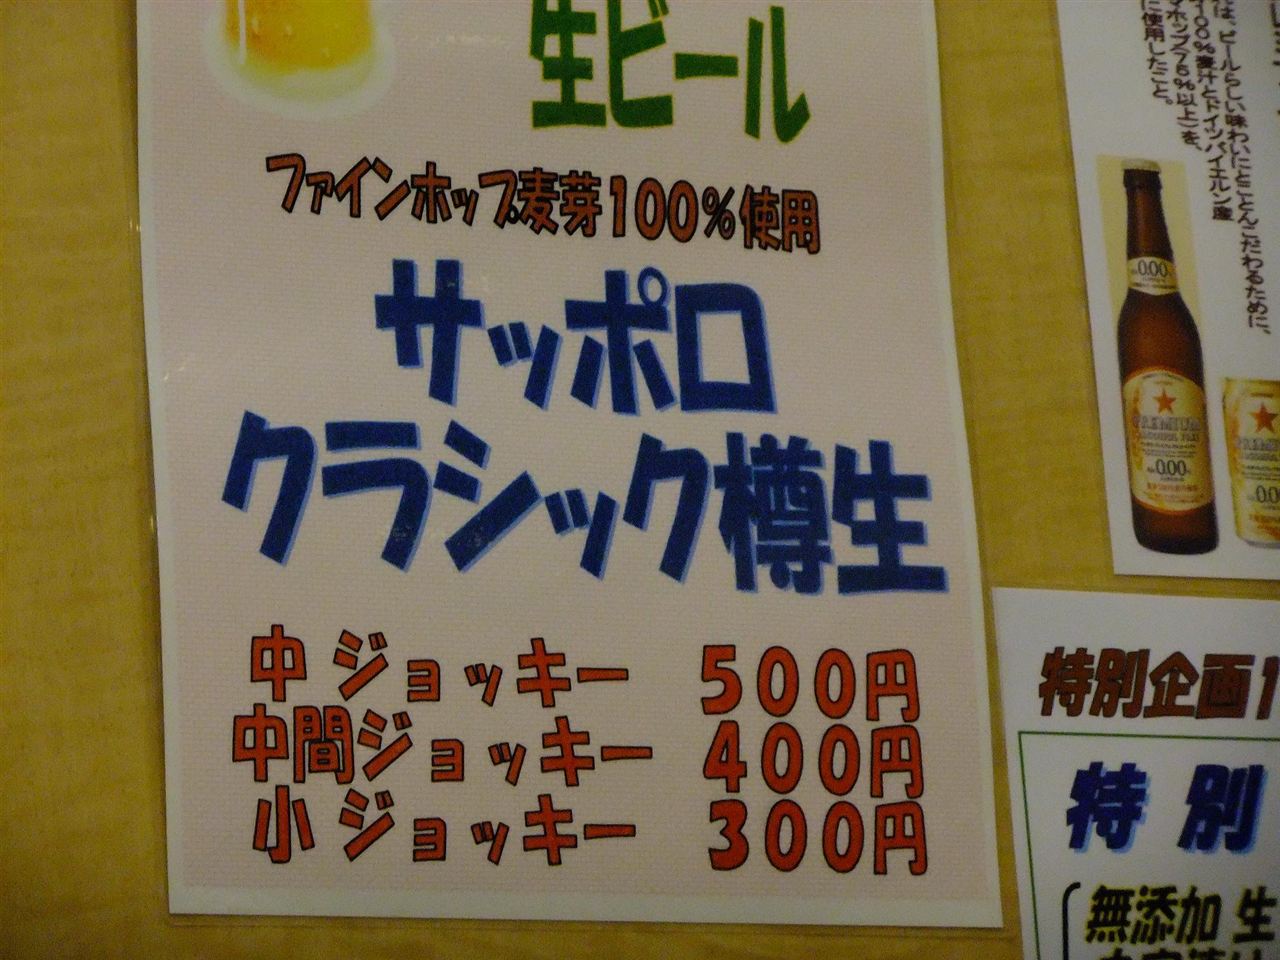 生ビール
ファインホップ麦芽100%使用
サッポロ
クラシック樽生
中ジョッキー 500円
中間ジョッキー 400円
小ジョッキー 300円
ビールらしい味わいにとことんこだわるために、
100%麦汁とドイツバイエルン産
ホップ75%以上)を、
に使用したこと。
0.00%
PREMIUM
ALCOHOL FREE
0.00%
PREMIUM
特別企画1
特別
無添加 生